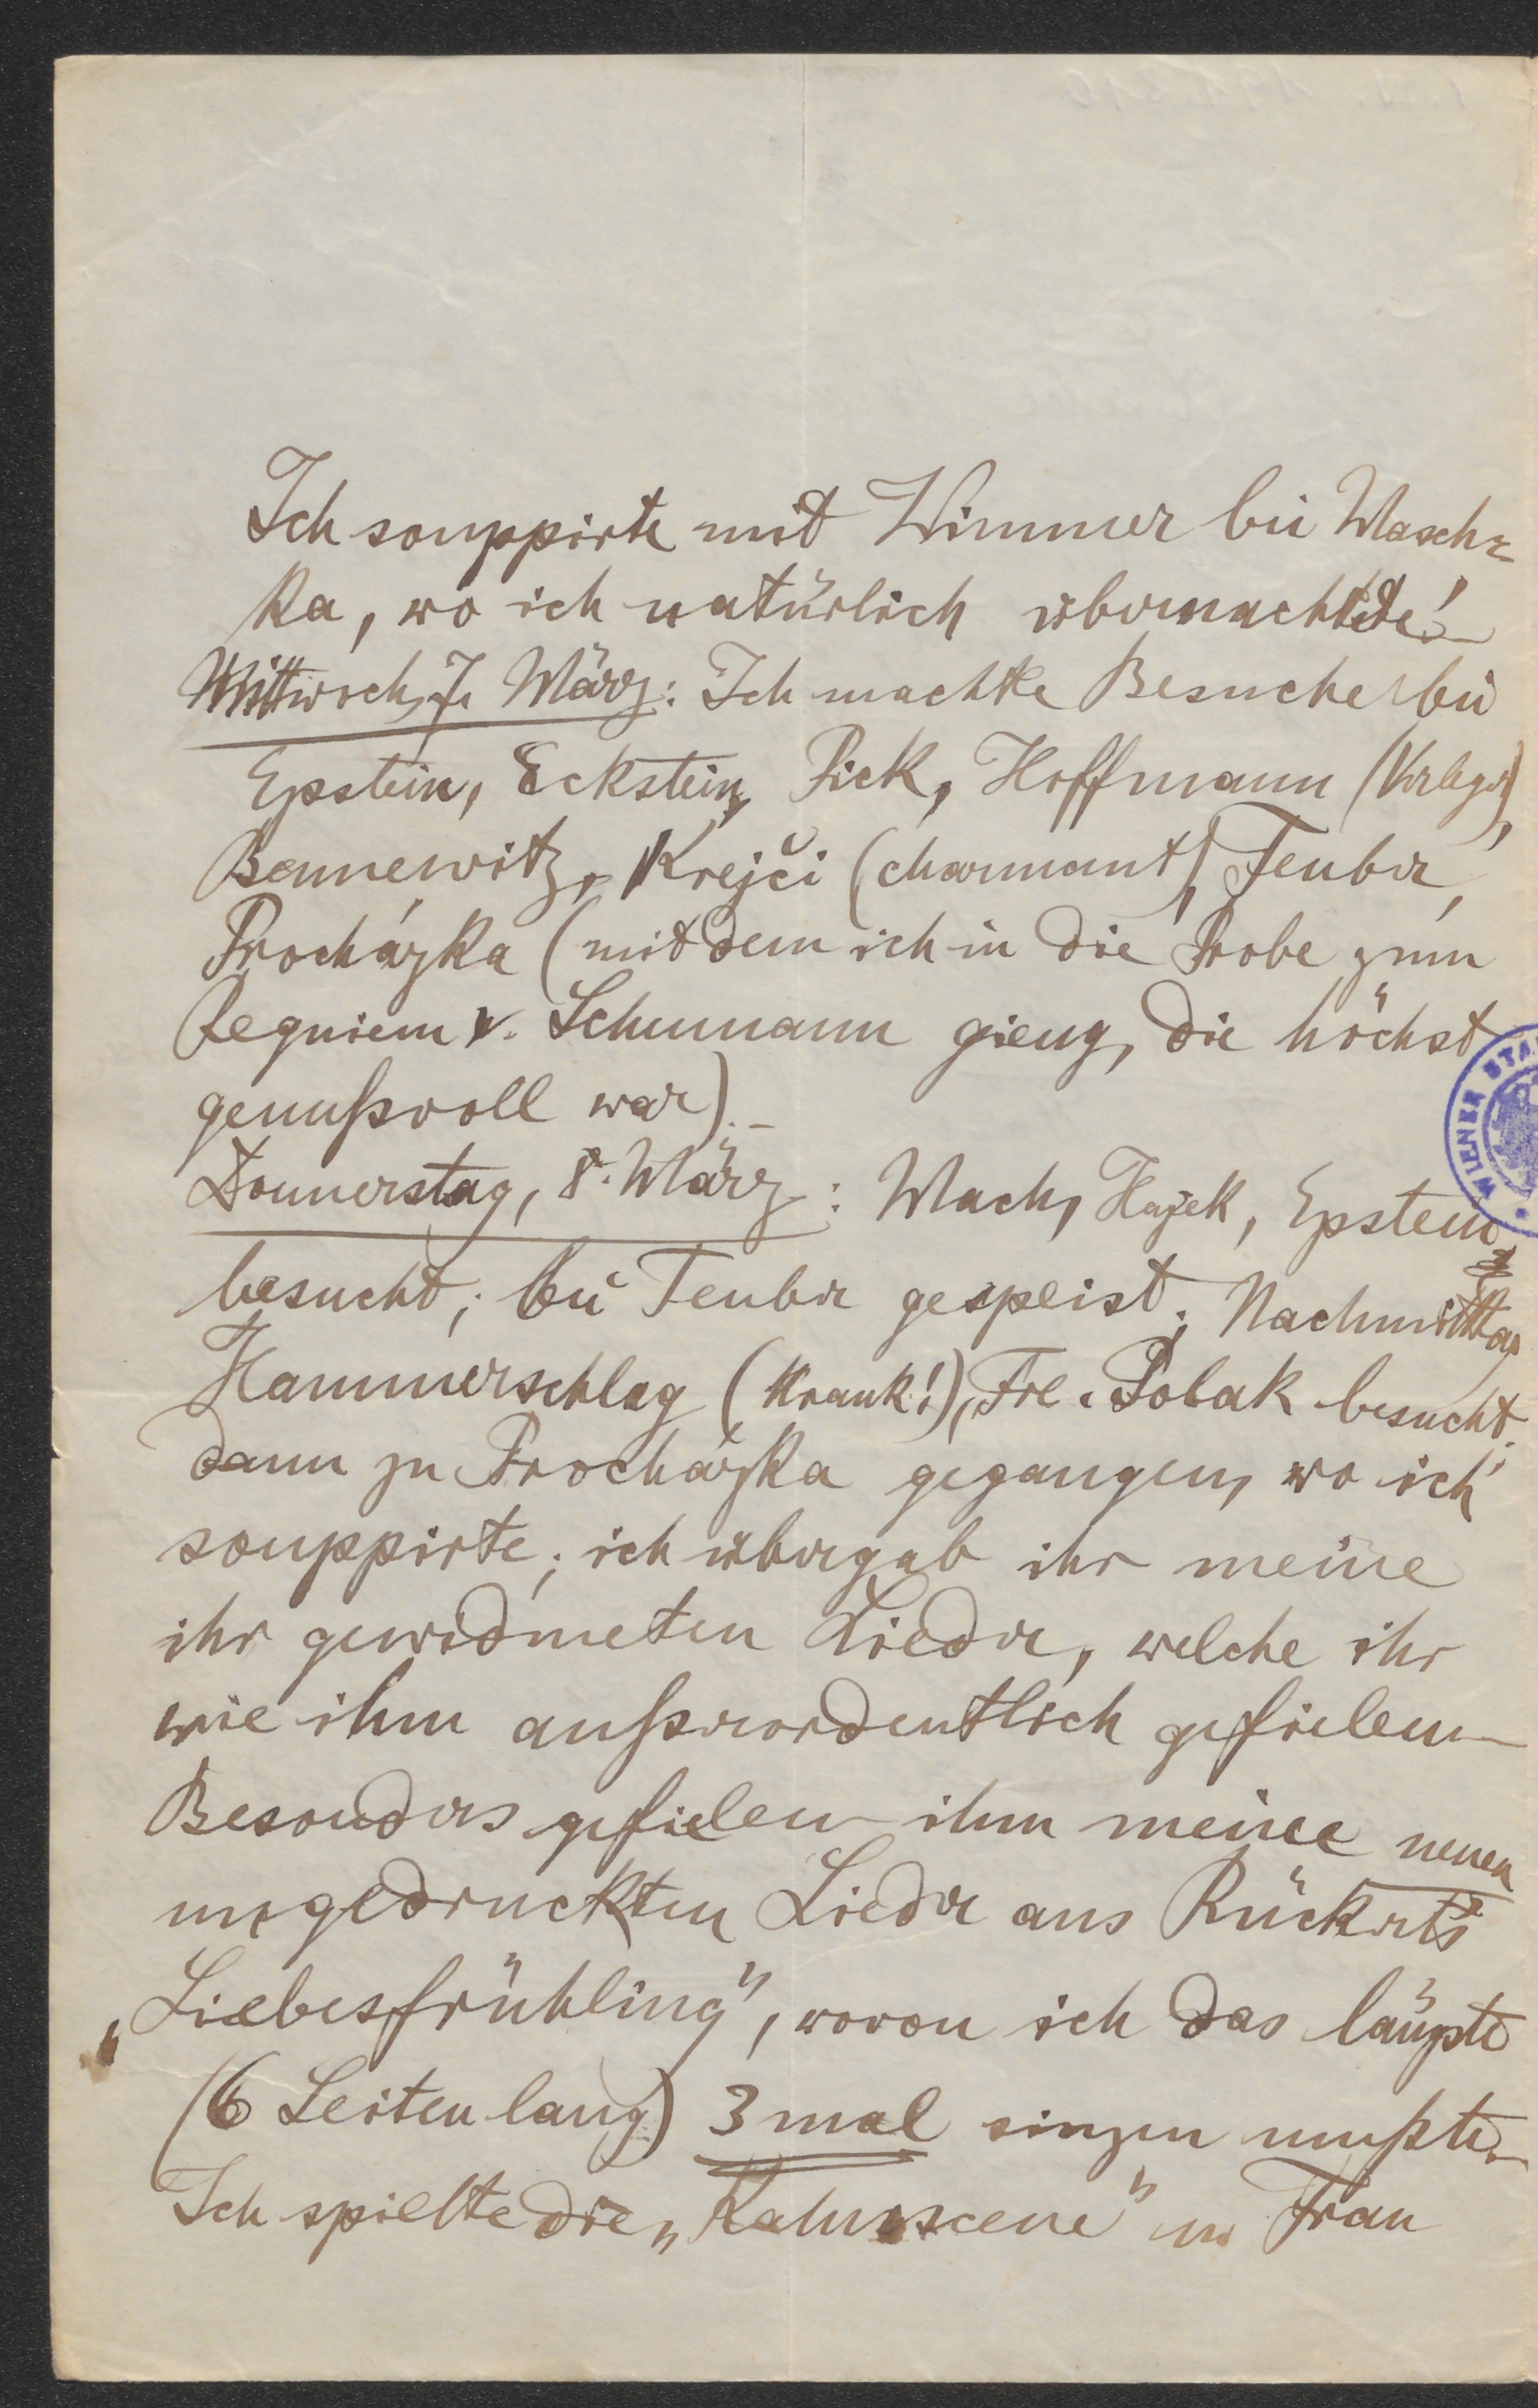 Ich souppirte mit Wimmer bei Masch-
ka, wo ich natürlich übernachtete!
Mittwoch, 7. März: Ich machte Besuche bei
Epstein, Eckstein, Pick, Hoffmann (Verleger),
Bennewitz, Krejči (charmant), Teuber,
Procházka (mit dem ich in die Probe zum
Requiem v. Schumann gieng, die höchst
genußvoll war).-
Donnerstag, 8. März: Mach, Hajek, Epstein
besucht; bei Teuber gespeist; Nachmittag
Hammerschlag (krank!), Frl. Polak besucht;
dann zu Procházka gegangen, wo ich
souppirte; ich übergab ihr meine
ihr gewidmeten Lieder, welche ihr
wie ihm außerordentlich gefielen
Besonders gefielen ihm meine neuen
ungedruckten Lieder aus Rückert's
„Liebesfrühling", wovon ich das längste
(6 Seiten lang) 3 mal singen mußte.
Ich spielte die „Kahnscene" u. Frau
WIENER STA